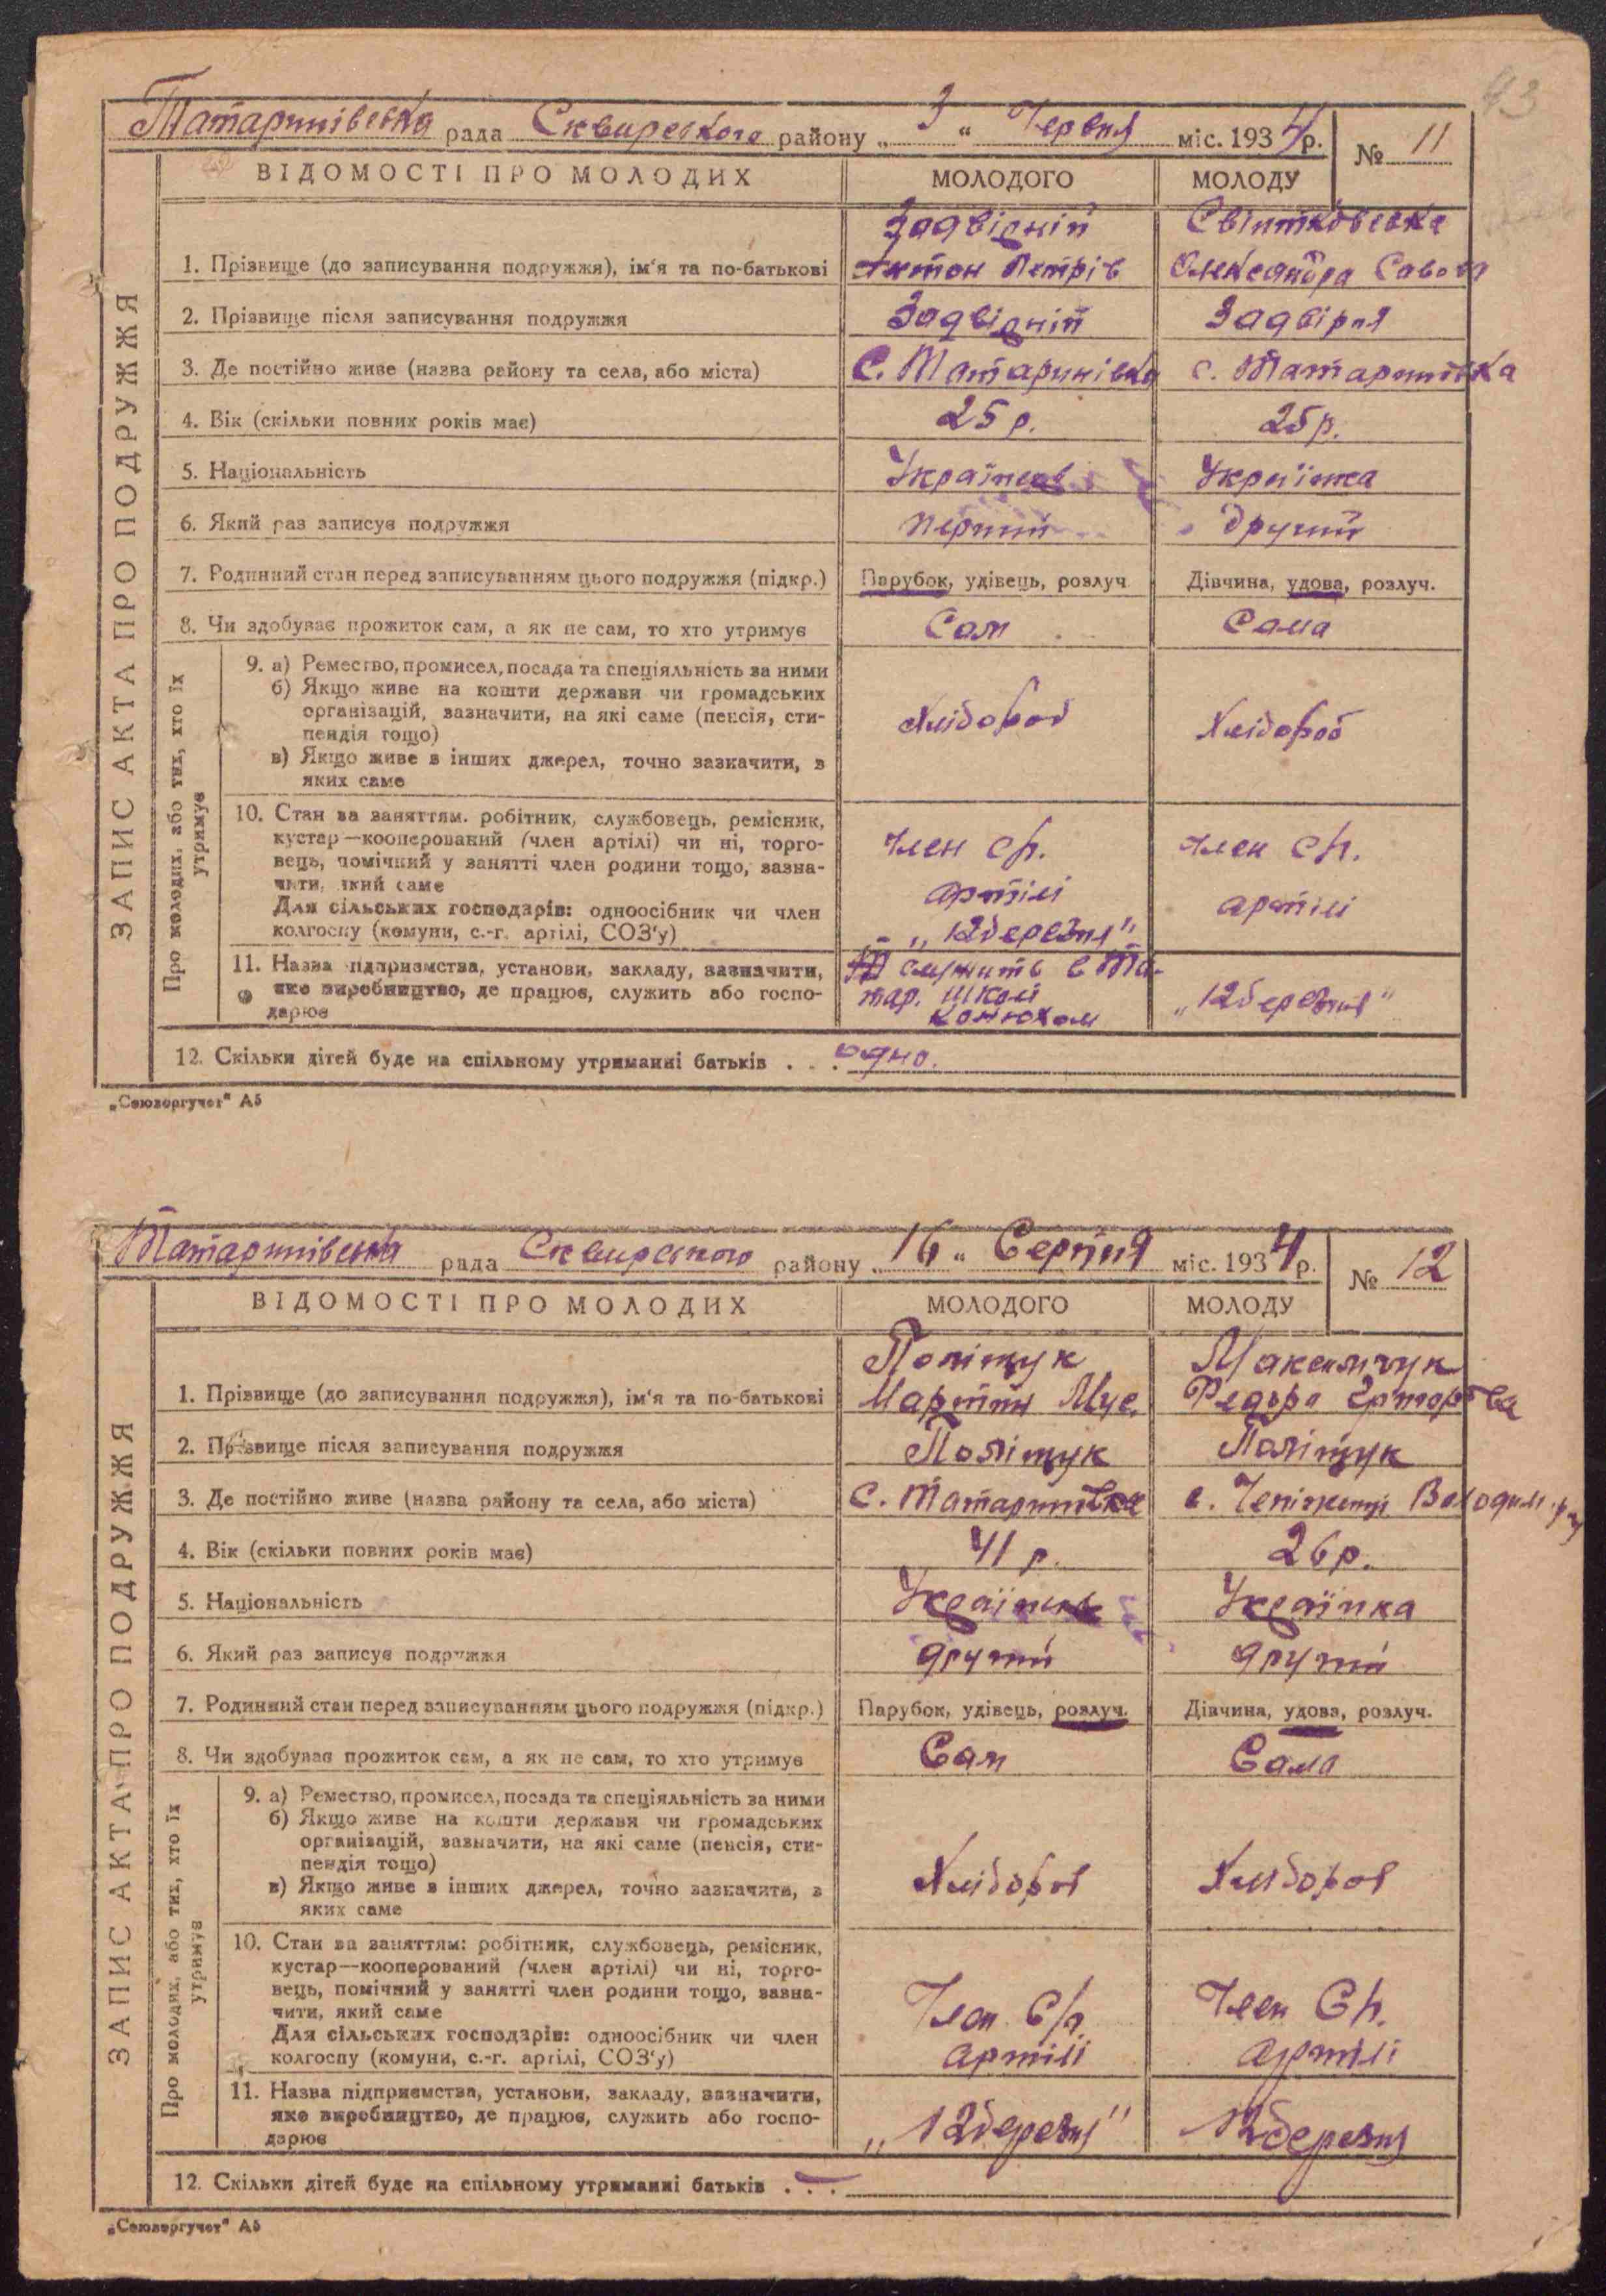 43
Татаринівська рада Сквирського району „ 3 “ Червня міс. 1934 р. № 11
ВІДОМОСТІ ПРО МОЛОДИХ МОЛОДОГО МОЛОДУ
ЗАПИС АКТА ПРО ПОДРУЖЖЯ
Задвірній Світковська
1. Прізвище (до записування подружжя), ім‘я та по-батькові Антон Петрів Олександра Савова
2. Прізвище після записування подружжя Задвірній Задвірня
3. Де постійно живе (назва району та села, або міста) С. Татаринівка с. Татаринівка
4. Вік (скільки повних років має) 25 р. 25 р.
5. Національність Українець Українка
6. Який раз записує подружжя перший другий
7. Родинний стан перед записуванням цього подружжя (підкр.) Парубок, удівець, розлуч. Дівчина, удова, розлуч.
8. Чи здобуває прожиток сам, а як не сам, то хто утримує Сам Сама
Про молодих, або тих, хто їх
утримує
9. а) Ремество, промисел, посада та спеціяльність за ними
б) Якщо живе на кошти держави чи громадських
організацій, зазначити, на які саме (пенсія, сти-
пендія тощо)
Хлібороб Хлібороб
в) Якщо живе з інших джерел, точно зазначити, з
яких саме
10. Стан за заняттям. робітник, службовець, ремісник,
кустар—кооперований (член артілі) чи ні, торго-
вець, помічний у занятті член родини тощо, зазна-
чити, який саме
Для сільських господарів: одноосібник чи член
колгоспу (комуни, с.-г. артілі, СОЗ‘у)
член с/г. член с/г.
артілі артілі
„12 березня“
11. Назва підприємства, установи, закладу, зазначити,
яке виробництво, де працює, служить або госпо-
дарює
служить в Та-
тар. школі „12 березня“
конюхом
12. Скільки дітей буде на спільному утриманні батьків . . . одно.
„Союзоргучет“ А5
Татаринівська рада Сквирського району „ 16 “ Серпня міс. 1934 р. № 12
ВІДОМОСТІ ПРО МОЛОДИХ МОЛОДОГО МОЛОДУ
ЗАПИС АКТА ПРО ПОДРУЖЖЯ
Поліщук Максимчук
1. Прізвище (до записування подружжя), ім‘я та по-батькові Мартин Мус.
2. Прізвище після записування подружжя Поліщук Поліщук
3. Де постійно живе (назва району та села, або міста) С. Татаринівка
4. Вік (скільки повних років має) 41 р. 26 р.
5. Національність Українець Українка
6. Який раз записує подружжя другий другий
7. Родинний стан перед записуванням цього подружжя (підкр.) Парубок, удівець, розлуч. Дівчина, удова, розлуч.
8. Чи здобуває прожиток сам, а як не сам, то хто утримує Сам Сама
Про молодих, або тих, хто їх
утримує
9. а) Ремество, промисел, посада та спеціяльність за ними
б) Якщо живе на кошти держави чи громадських
організацій, зазначити, на які саме (пенсія, сти-
пендія тощо)
Хлібороб Хлібороб
в) Якщо живе з інших джерел, точно зазначити, з
яких саме
10. Стан за заняттям: робітник, службовець, ремісник,
кустар—кооперований (член артілі) чи ні, торго-
вець, помічний у занятті член родини тощо, зазна-
чити, який саме
Для сільських господарів: одноосібник чи член
колгоспу (комуни, с.-г. артілі, СОЗ‘у)
Член С/г. Член С/г.
артілі артілі
11. Назва підприємства, установи, закладу, зазначити,
яке виробництво, де працює, служить або госпо-
дарює
„12 березня“ 12 березня
12. Скільки дітей буде на спільному утриманні батьків . . . —
„Союзоргучет“ А5